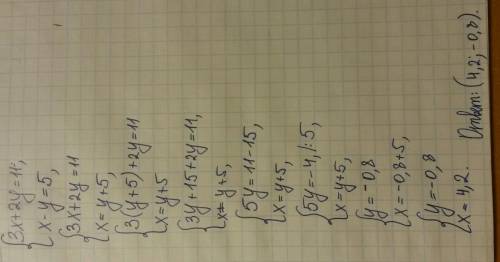 3x+2y=11;
x-y=5,
3x+2y=11
x=y+5,
3(y+5)+2y=11
x=y+5
3y+15+2y=11,
x=y+5,
5y=11-15,
x=y+5,
5y=-4,|:5,
x=y+5,
y=-0,8
x=-0,8+5,
y=-0,8
x=4,2. Ответ: (4,2; -0,8).